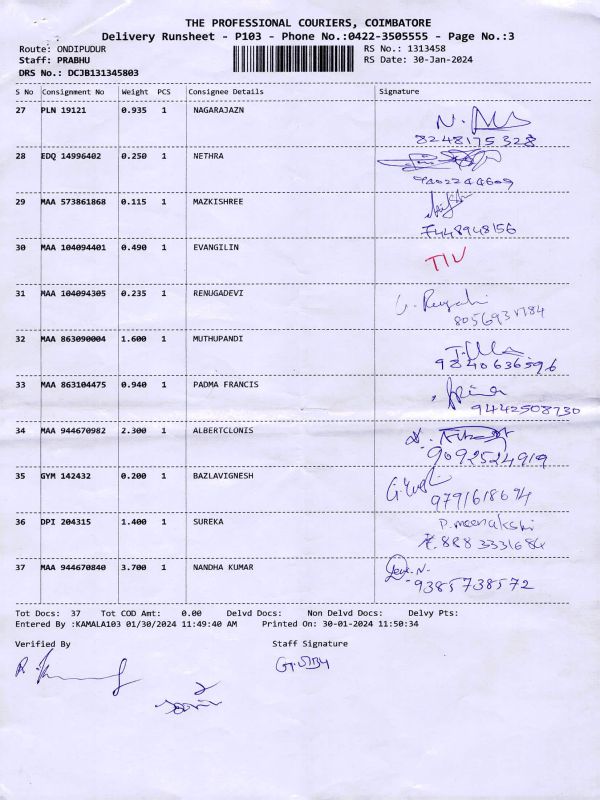 THE PROFESSIONAL COURIERS, COIMBATORE
Delivery Runsheet - P103 - Phone No.:0422-3505555 - Page No.:3
Route: ONDIPUDUR RS No.: 1313458
Staff: PRABHU RS Date: 30-Jan-2024
DRS No.: DCJB131345803
S No Consignment No Weight PCS Consignee Details Signature
27 PLN 19121 0.935 1 NAGARAJAZN
8248175328
28 EDQ 14996402 0.250 1 NETHRA
9402244609
29 MAA 573861868 0.115 1 MAZKISHREE
7448948156
30 MAA 104094401 0.490 1 EVANGILIN
TIU
31 MAA 104094305 0.235 1 RENUGADEVI
32 MAA 863090004 1.600 1 MUTHUPANDI
9840636596
33 MAA 863104475 0.940 1 PADMA FRANCIS
9442508730
34 MAA 944670982 2.300 1 ALBERTCLONIS
9092524919
35 GYM 142432 0.200 1 BAZLAVIGNESH
9791618694
36 DPI 204315 1.400 1 SUREKA
P. meenakshi
37 MAA 944670840 3.700 1 NANDHA KUMAR
9385738572
Tot Docs: 37 Tot COD Amt: 0.00 Delvd Docs: Non Delvd Docs: Delvy Pts:
Entered By :KAMALA103 01/30/2024 11:49:40 AM Printed On: 30-01-2024 11:50:34
Verified By Staff Signature